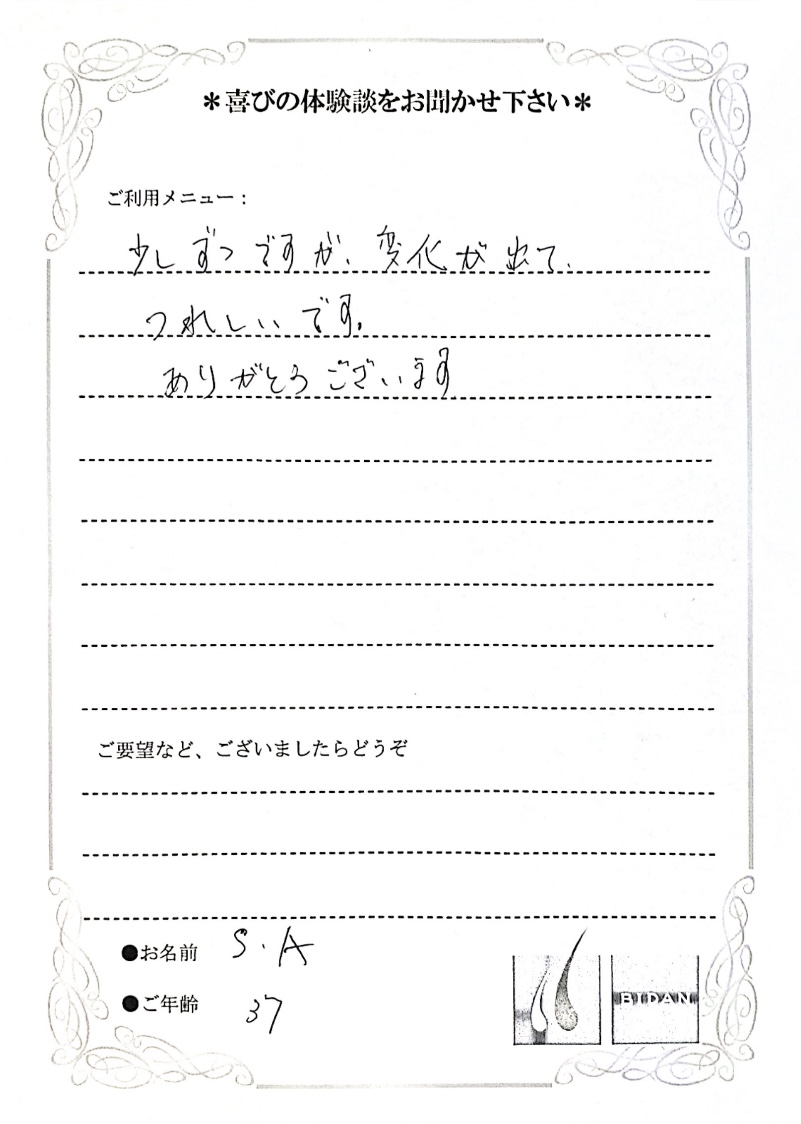 ＊喜びの体験談をお聞かせ下さい＊
ご利用メニュー：
少しずつですが、変化が出て、
うれしいです。
ありがとうございます
ご要望など、ございましたらどうぞ
●お名前 S.A
●ご年齢 37
BIDAN